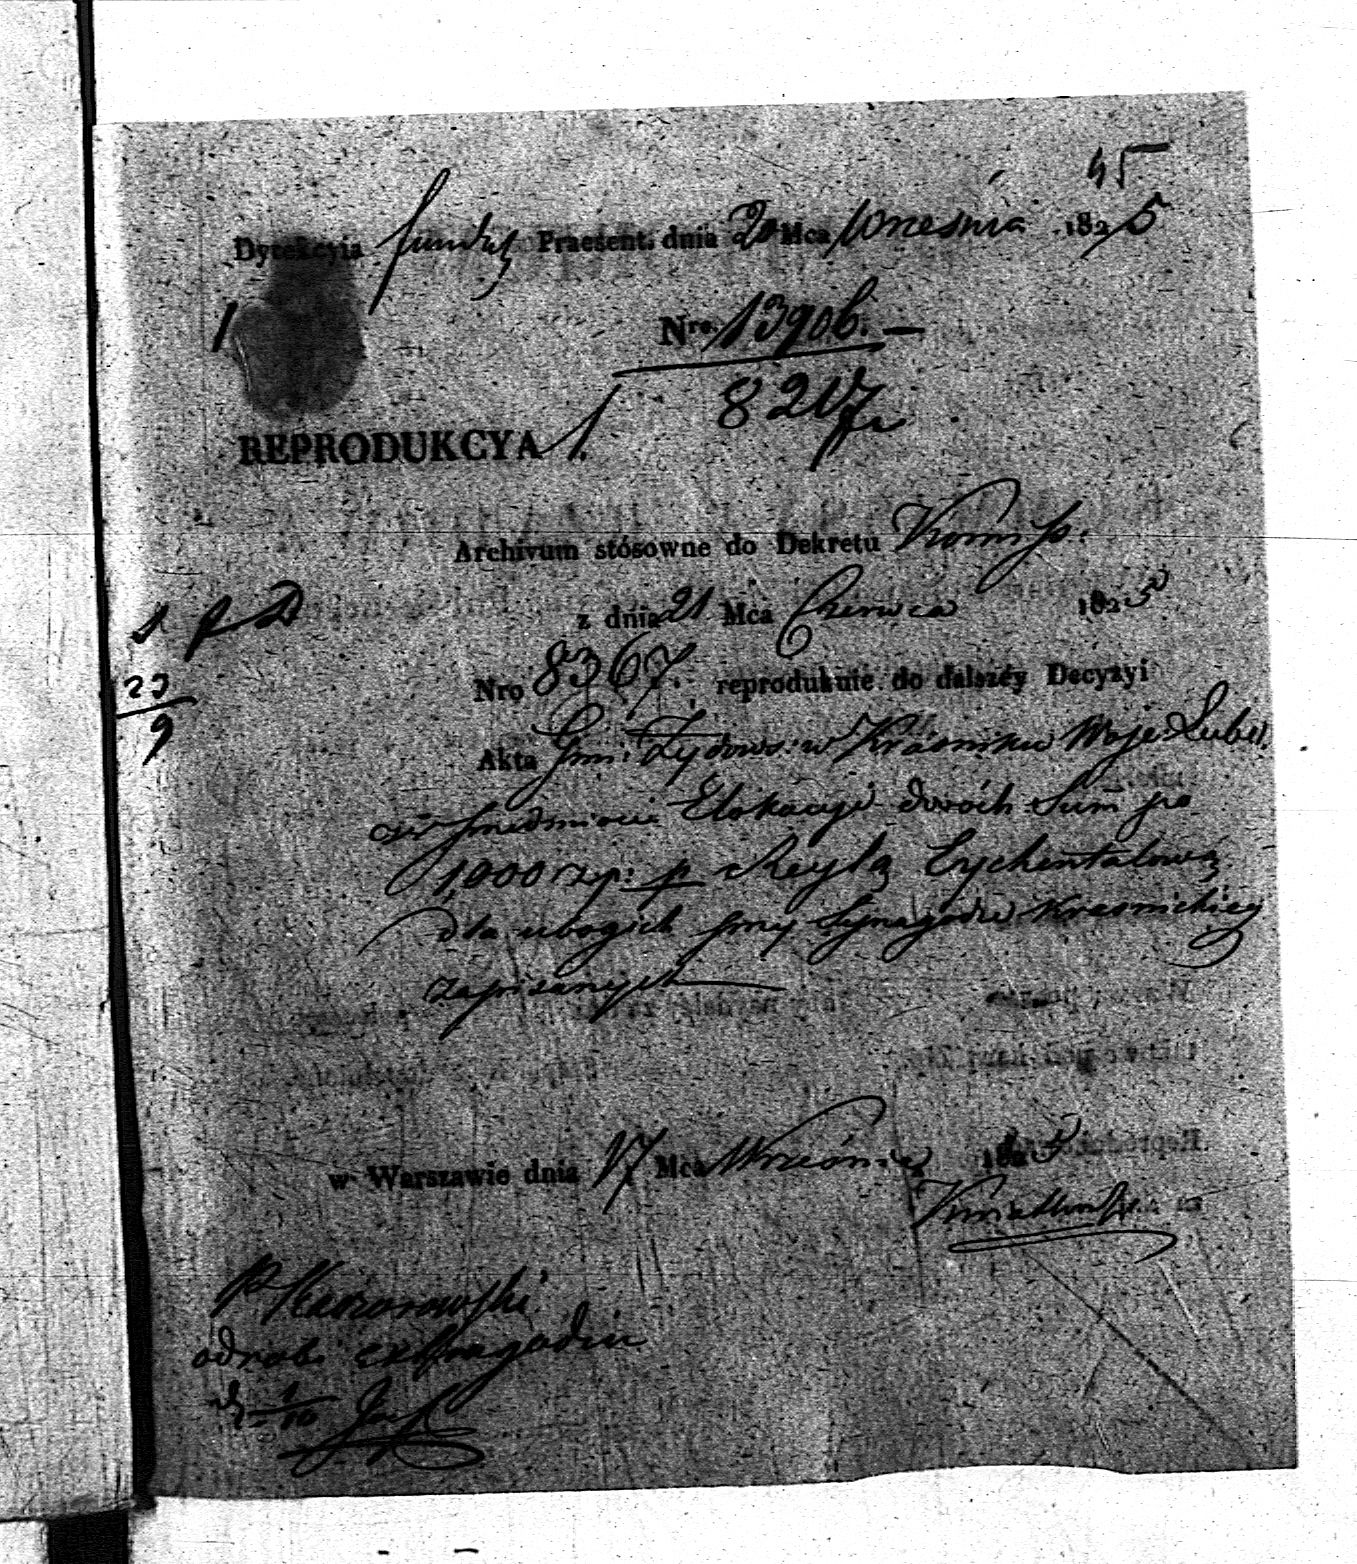 45
Dyrekcyia fundusz Praesent. dnia 20 Mca Września 1825
1
Nro. 13906. —
8217
REPRODUKCYA 1.
Archivum stósowne do Dekretu Kommiss.
z dnia 21 Mca Czerwca 1825
Nro 8367. reprodukuie do dalszéy Decyzyi
23
9
Akta Gmi: Żydows: w Kraśniku Woje: Lubel.
w przedmiocie Elokacyi dwóch Summ po
1,000 rzp: p Reyzlę Cychentalową
dla ubogich przy Synagodze Krasnickiey
zapisanych
w Warszawie dnia 17 Mca Września 1825